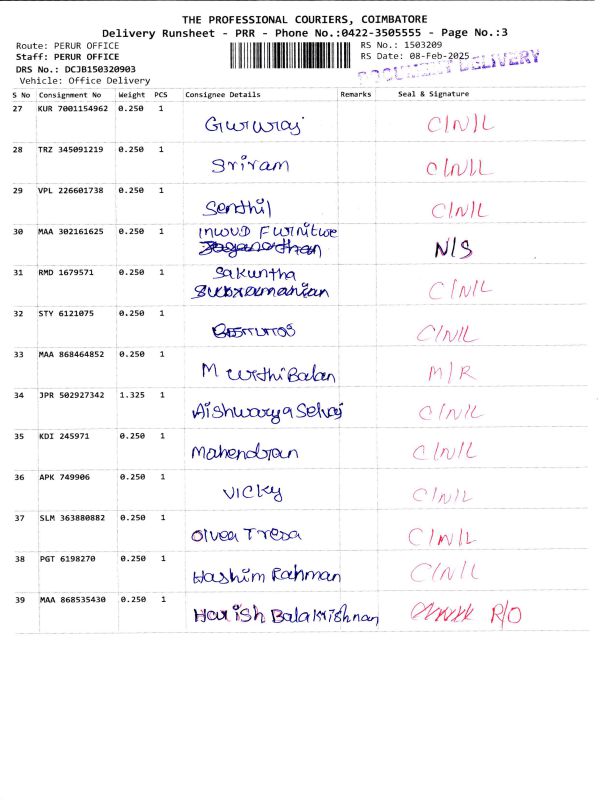 THE PROFESSIONAL COURIERS, COIMBATORE
Delivery Runsheet - PRR - Phone No.:0422-3505555 - Page No.:3
Route: PERUR OFFICE
RS No.: 1503209
Staff: PERUR OFFICE
RS Date: 08-Feb-2025
DOCUMENT DELIVERY
DRS No.: DCJB150320903
Vehicle: Office Delivery
S No Consignment No Weight PCS Consignee Details Remarks Seal & Signature
27 KUR 7001154962 0.250 1 Gururaj C/N/L
28 TRZ 345091219 0.250 1 Sriram C/N/L
29 VPL 226601738 0.250 1 Senthil C/N/L
30 MAA 302161625 0.250 1 INWUD Furnitwe N/S
31 RMD 1679571 0.250 1 Sakuntha C/N/L
Subramanian
32 STY 6121075 0.250 1 C/N/L
33 MAA 868464852 0.250 1 M urthi Balan M/R
34 JPR 502927342 1.325 1 Aishwarya Selvaj C/N/L
35 KDI 245971 0.250 1 Mahendran C/N/L
36 APK 749906 0.250 1 VICKY C/N/L
37 SLM 363880882 0.250 1 Olvea Tresa C/N/L
38 PGT 6198270 0.250 1 Hashim Rahman C/N/L
39 MAA 868535430 0.250 1 Harish Balakrishnan R/O